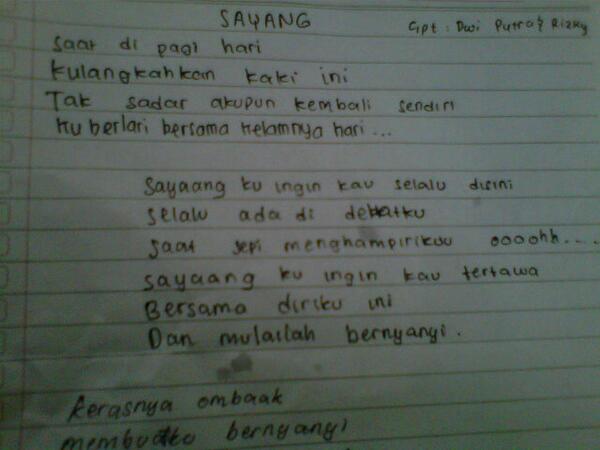 SAYANG
Cipt : Dwi Putra & Rizky
Saat di pagi hari
Kulangkahkan kaki ini
Tak sadar akupun kembali sendiri
Ku berlari bersama kelamnya hari...
Sayaang ku ingin kau selalu disini
selalu ada di dekatku
saat sepi menghampirikuu oooohh....
sayaang ku ingin kau tertawa
Bersama diriku ini
Dan mulailah bernyanyi.
Kerasnya ombaak
membuatku bernyanyi